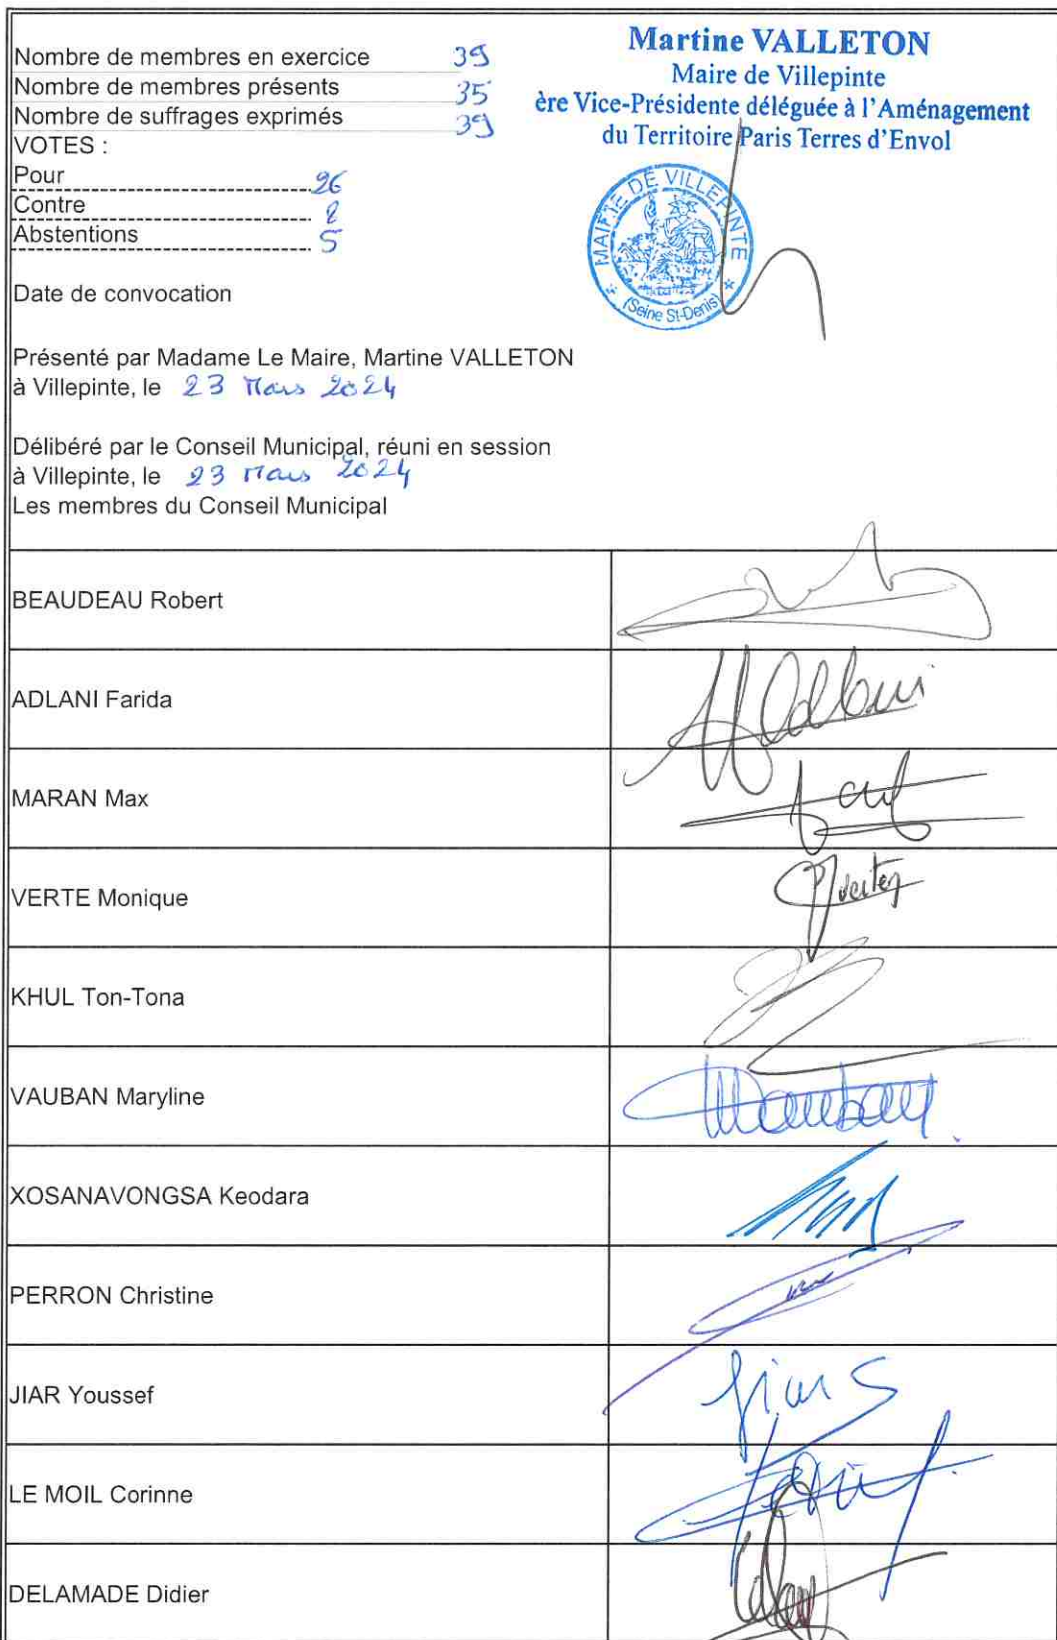 Nombre de membres en exercice 39
Nombre de membres présents 35
Nombre de suffrages exprimés 39
VOTES :
Pour 26
Contre 8
Abstentions 5
Martine VALLETON
Maire de Villepinte
ère Vice-Présidente déléguée à l'Aménagement
du Territoire Paris Terres d'Envol
MAIRIE DE VILLEPINTE
(Seine St-Denis)
Date de convocation
Présenté par Madame Le Maire, Martine VALLETON
à Villepinte, le 23 Mars 2024
Délibéré par le Conseil Municipal, réuni en session
à Villepinte, le 23 Mars 2024
Les membres du Conseil Municipal
BEAUDEAU Robert
ADLANI Farida
MARAN Max
VERTE Monique
KHUL Ton-Tona
VAUBAN Maryline
XOSANAVONGSA Keodara
PERRON Christine
JIAR Youssef
LE MOIL Corinne
DELAMADE Didier